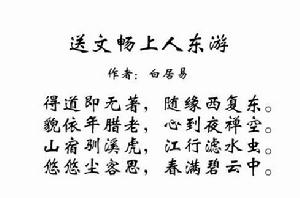 送文畅上人东游
作者：白居易
得道即无著，随缘西复东。
貌依年腊老，心到夜禅空。
山宿驯溪虎，江行滤水虫。
悠悠尘客思，春满碧云中。